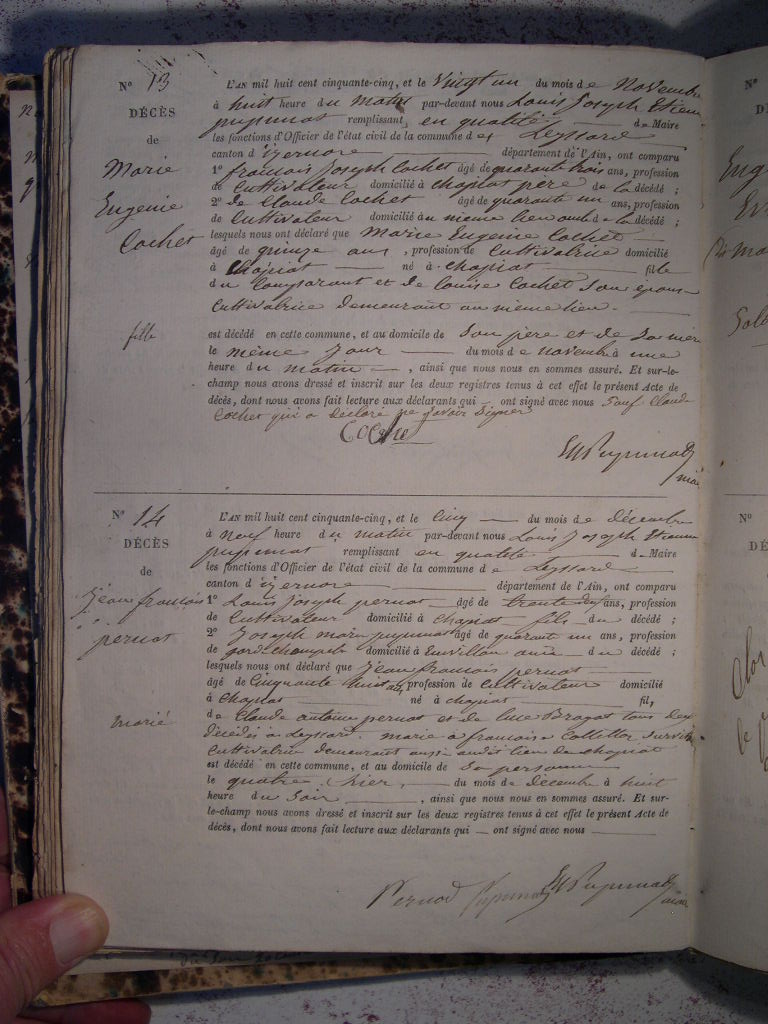 N° 13
DÉCÈS
de
Marie
Eugenie
Cochet
fille
L'AN mil huit cent cinquante-cinq, et le Vingt un du mois de Novembre
à huit heure du matin par-devant nous Louis Joseph Etienne
pupunat remplissant, en qualité de Maire
les fonctions d'Officier de l'état civil de la commune de Leyssard
canton d'izernore département de l'Ain, ont comparu
1° francois Joseph Cochet âgé de quarante trois ans, profession
de Cultivateur domicilié à chapiat pere de la décédé ;
2° de Claude Cochet âgé de quarante un ans, profession
de Cultivateur domicilié au meme lieu oncle de la décédé ;
lesquels nous ont déclaré que Marie Eugenie Cochet
âgé de quinze ans, profession de Cultivatrice domicilié
à Chapiat né à chapiat fille
du Comparant et de Louise Cochet Son épouse
Cultivatrice demeurant au même lieu.
est décédé en cette commune, et au domicile de Son père et de Sa mère
le même Jour du mois de novembre à une
heure du matin, ainsi que nous nous en sommes assuré. Et sur-le-
champ nous avons dressé et inscrit sur les deux registres tenus à cet effet le présent Acte de
décès, dont nous avons fait lecture aux déclarants qui ont signé avec nous Sauf Claude
Cochet qui a déclaré ne savoir Signer
Cochet
pupunat
maire
N° 14
DÉCÈS
de
Jean francois
pernot
marié
L'AN mil huit cent cinquante-cinq, et le Cinq du mois de décembre
à neuf heure du matin par-devant nous Louis Joseph Etienne
pupunat remplissant en qualité de Maire
les fonctions d'Officier de l'état civil de la commune de Leyssard
canton d'izernore département de l'Ain, ont comparu
1° Louis Joseph pernot âgé de trente deux ans, profession
de Cultivateur domicilié à Chapiat fils du décédé ;
2° Joseph marie pupunat âgé de quarant un ans, profession
de gardechampêtre domicilié à Euvillon ami du décédé ;
lesquels nous ont déclaré que Jean francois pernot
âgé de Cinquante huit ans, profession de Cultivateur domicilié
à chapiat né à chapiat fil,
de Claude antoine pernot et de tous deux
décédés à Leyssard. marié à francoise
Cultivatrice demeurant aussi audit lieu de chapiat
est décédé en cette commune, et au domicile de Sa personne
le quatre, hier, du mois de décembre à huit
heure du Soir, ainsi que nous nous en sommes assuré. Et sur-
le-champ nous avons dressé et inscrit sur les deux registres tenus à cet effet le présent Acte de
décès, dont nous avons fait lecture aux déclarants qui ont signé avec nous
Pernod pupunat pupunat
maire